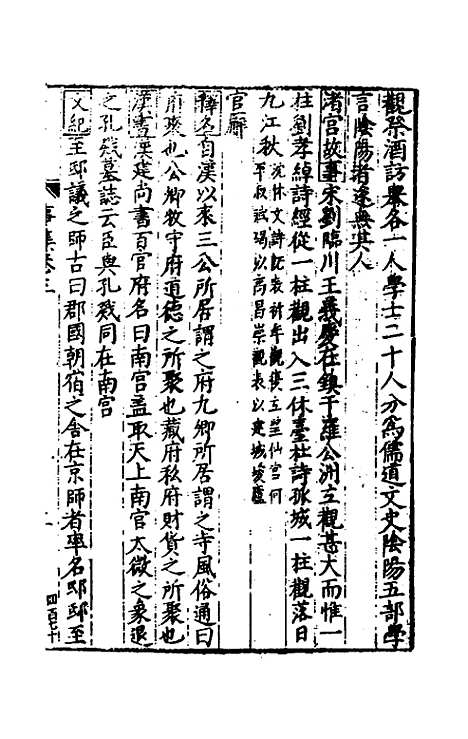 觀祭酒訪舉各一人學士二十人分爲儒道文史陰陽五部學
言陰陽者遂無其人
渚宮故事宋劉臨川王義慶在鎮于羅公洲立觀甚大而惟一
柱劉孝綽詩經從一柱觀出入三休臺杜詩孤城一柱觀落日
九江秋沈休文詩
官廨
釋名自漢以來三公所居謂之府九卿所居謂之寺風俗通曰
府聚也公卿牧守府道德之所聚也藏府私府財貨之所聚也
漢書案建尚書百官府名曰南宮蓋取天上南宮太微之象退
之孔戣墓誌云臣與孔戣同在南宮
文紀至邸議之師古曰郡國朝宿之舍在京師者率名邸邸至